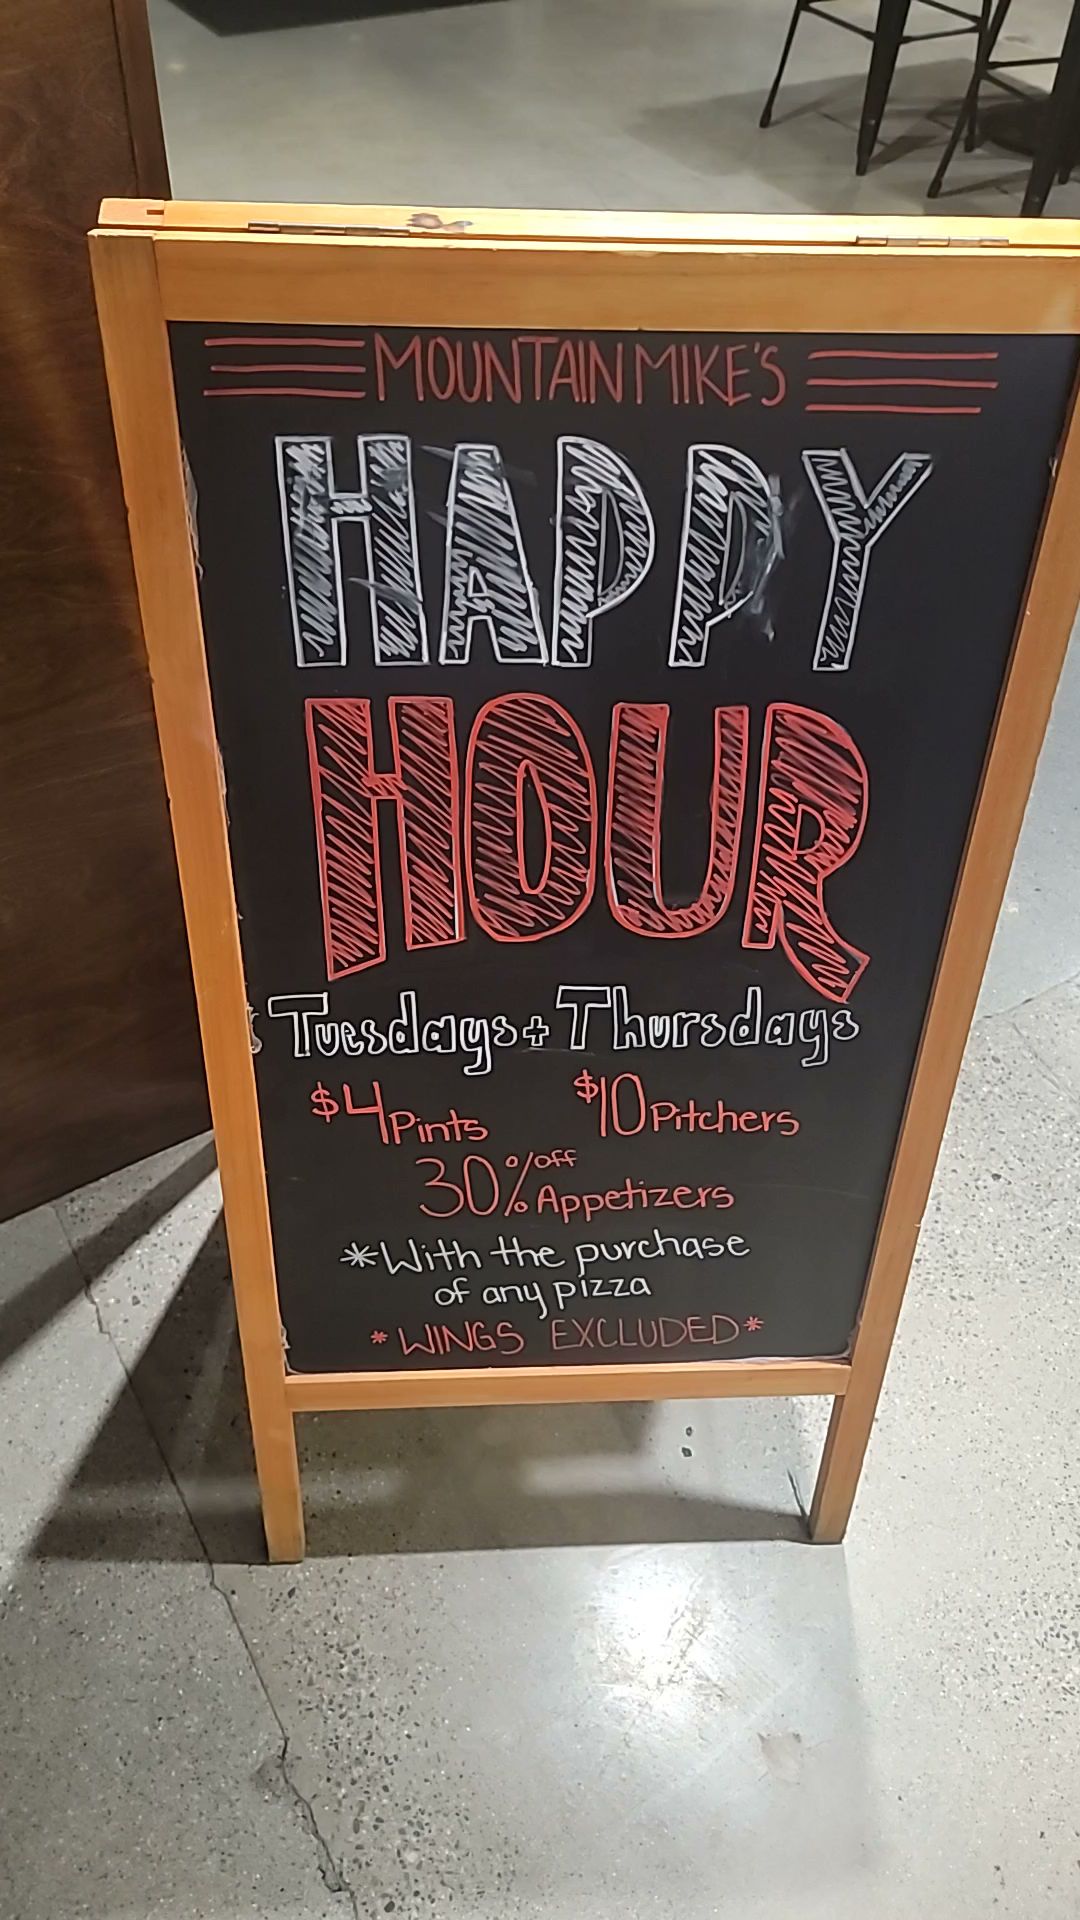 MOUNTAIN MIKE'S
HAPPY
HOUR
Tuesdays + Thursdays
$4 Pints $10 Pitchers
30% off Appetizers
*With the purchase
of any pizza
*WINGS EXCLUDED*